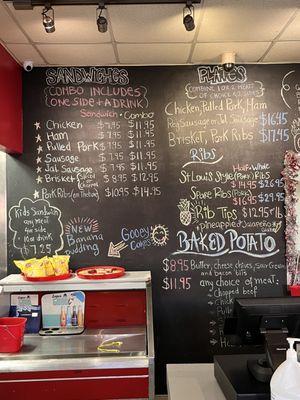 SANDWICHES
COMBO INCLUDES
(ONE SIDE + A DRINK)
Sandwich - Combo
Chicken $7.95 $11.95
Ham $7.95 $11.95
Pulled Pork $7.95 $11.95
Sausage $7.95 $11.95
Jal Sausage $7.95 $11.95
Brisket $8.95 $12.95
Pork Ribs $10.95 $14.95
Kids Sandwich
any meat
w/ one side
+ a drink
$7.25
NEW
BANANA
pudding
Gooey
Cakes
PLATES
COMBINE 1 OR 2 MEATS
CHOICE of 2 SIDES
Chicken, Pulled Pork, Ham
Reg Sausage or Jal. Sausage $16.95
Brisket, Pork Ribs $17.95
Ribs
Half - Whole
St Louis Style (Pork) Ribs
$14.95 $26.95
Spare Ribs (Pork)
$16.95 $29.95
Rib Tips $12.95 lb
BAKED POTATO
$8.95 Butter, cheese, chives, sour cream
and bacon bits
$11.95 any choice of meat:
Chopped beef